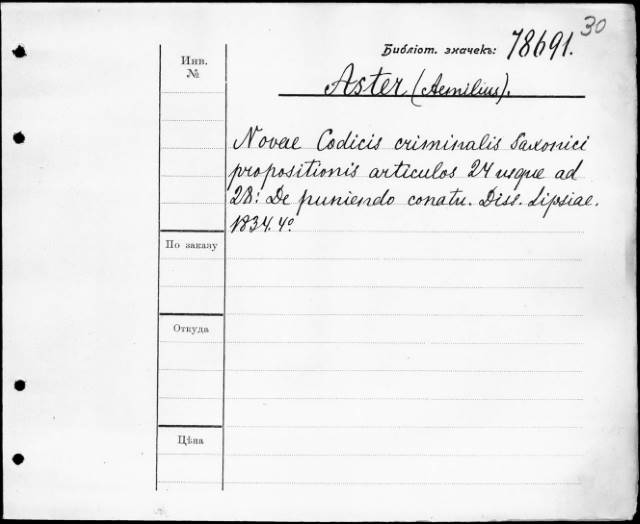 30
Библіот. значекъ: 78691.
Инв.
№
Aster (Aemilius).
Novae Codicis criminalis Saxonici
propositionis articulos 24 usque ad
28: De puniendo conatu. Diss. Lipsiae.
1834. 4º
По заказу
Откуда
Цѣна